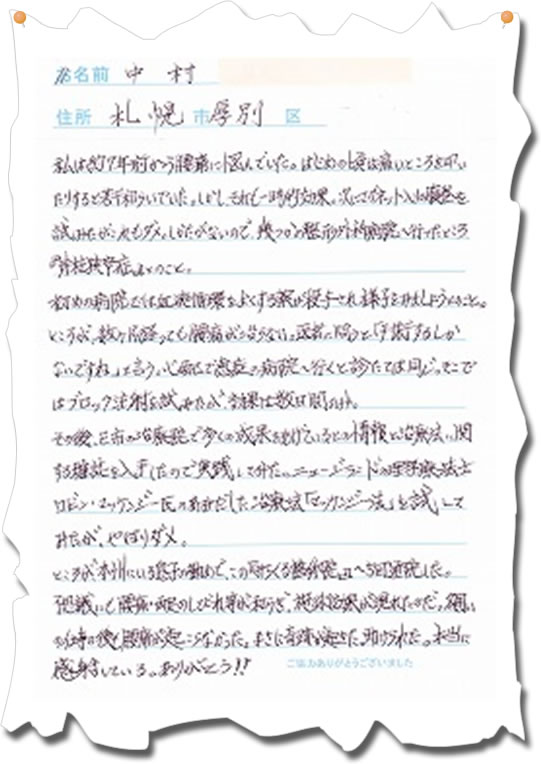 お名前 中村
住所 札幌市厚別区
私は約7年前から腰痛に悩んでいた。はじめの頃は痛いところを叩い
たりすると若干和らいでいた。しかし、それも一時的効果。次にマグネット入りの寝具を
試みたがこれもダメ。しかたがないので、幾つかの整形外科病院へ行ったところ
『脊柱狭窄症』とのこと。
初めの病院では血液循環をよくする薬が投与され、様子をみましょうとのこと。
ところが、数ヶ月経っても腰痛がおさらない。医者に問うと「手術するしか
ないですね」と言う。心配して他の病院へ行くと診たては同じ。そこで
はブロック注射を試みたが、効果は数日間だけ。
その後、E市の治療院で多くの成果をあげているとの情報と治療法に関
する雑誌を入手したので実践してみた。ニュージーランドの理学療法士
ロビン・マッケンジー氏のあみだした治療法「マッケンジー法」を試して
みたが、やはりダメ。
ところが本州にいる息子の勧めで、この整体院へ5回通院した。
不思議にも腰痛・両足のしびれ等が和らぎ、施術効果が現れたのだ。
の仕事の後も腰痛が起こらなかった。まさに奇跡が起きた。助けられた。本当に
感謝している。ありがとう!!
ご協力ありがとうございました